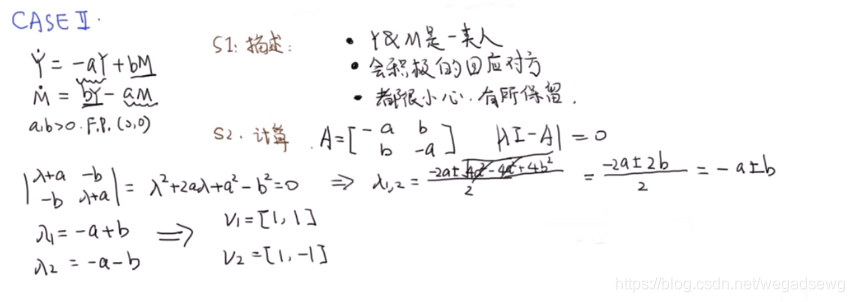 CASE Ⅱ.
Ẏ = -aY + bM
Ṁ = bY - aM
a,b>0. F.P. (0,0)
S1: 描述:
• Y&M是一类人
• 会积极的回应对方
• 都很小心.有所保留.
S2. 计算. A=[-a b; b -a] |λI-A|=0
|λ+a -b; -b λ+a| = λ²+2aλ+a²-b²=0 ⇒ λ₁,₂ = (-2a±√(4a²-4a²+4b²))/2 = (-2a±2b)/2 = -a±b
λ₁=-a+b ⇒ V₁=[1,1]
λ₂=-a-b V₂=[1,-1]
https://blog.csdn.net/wegadsewg